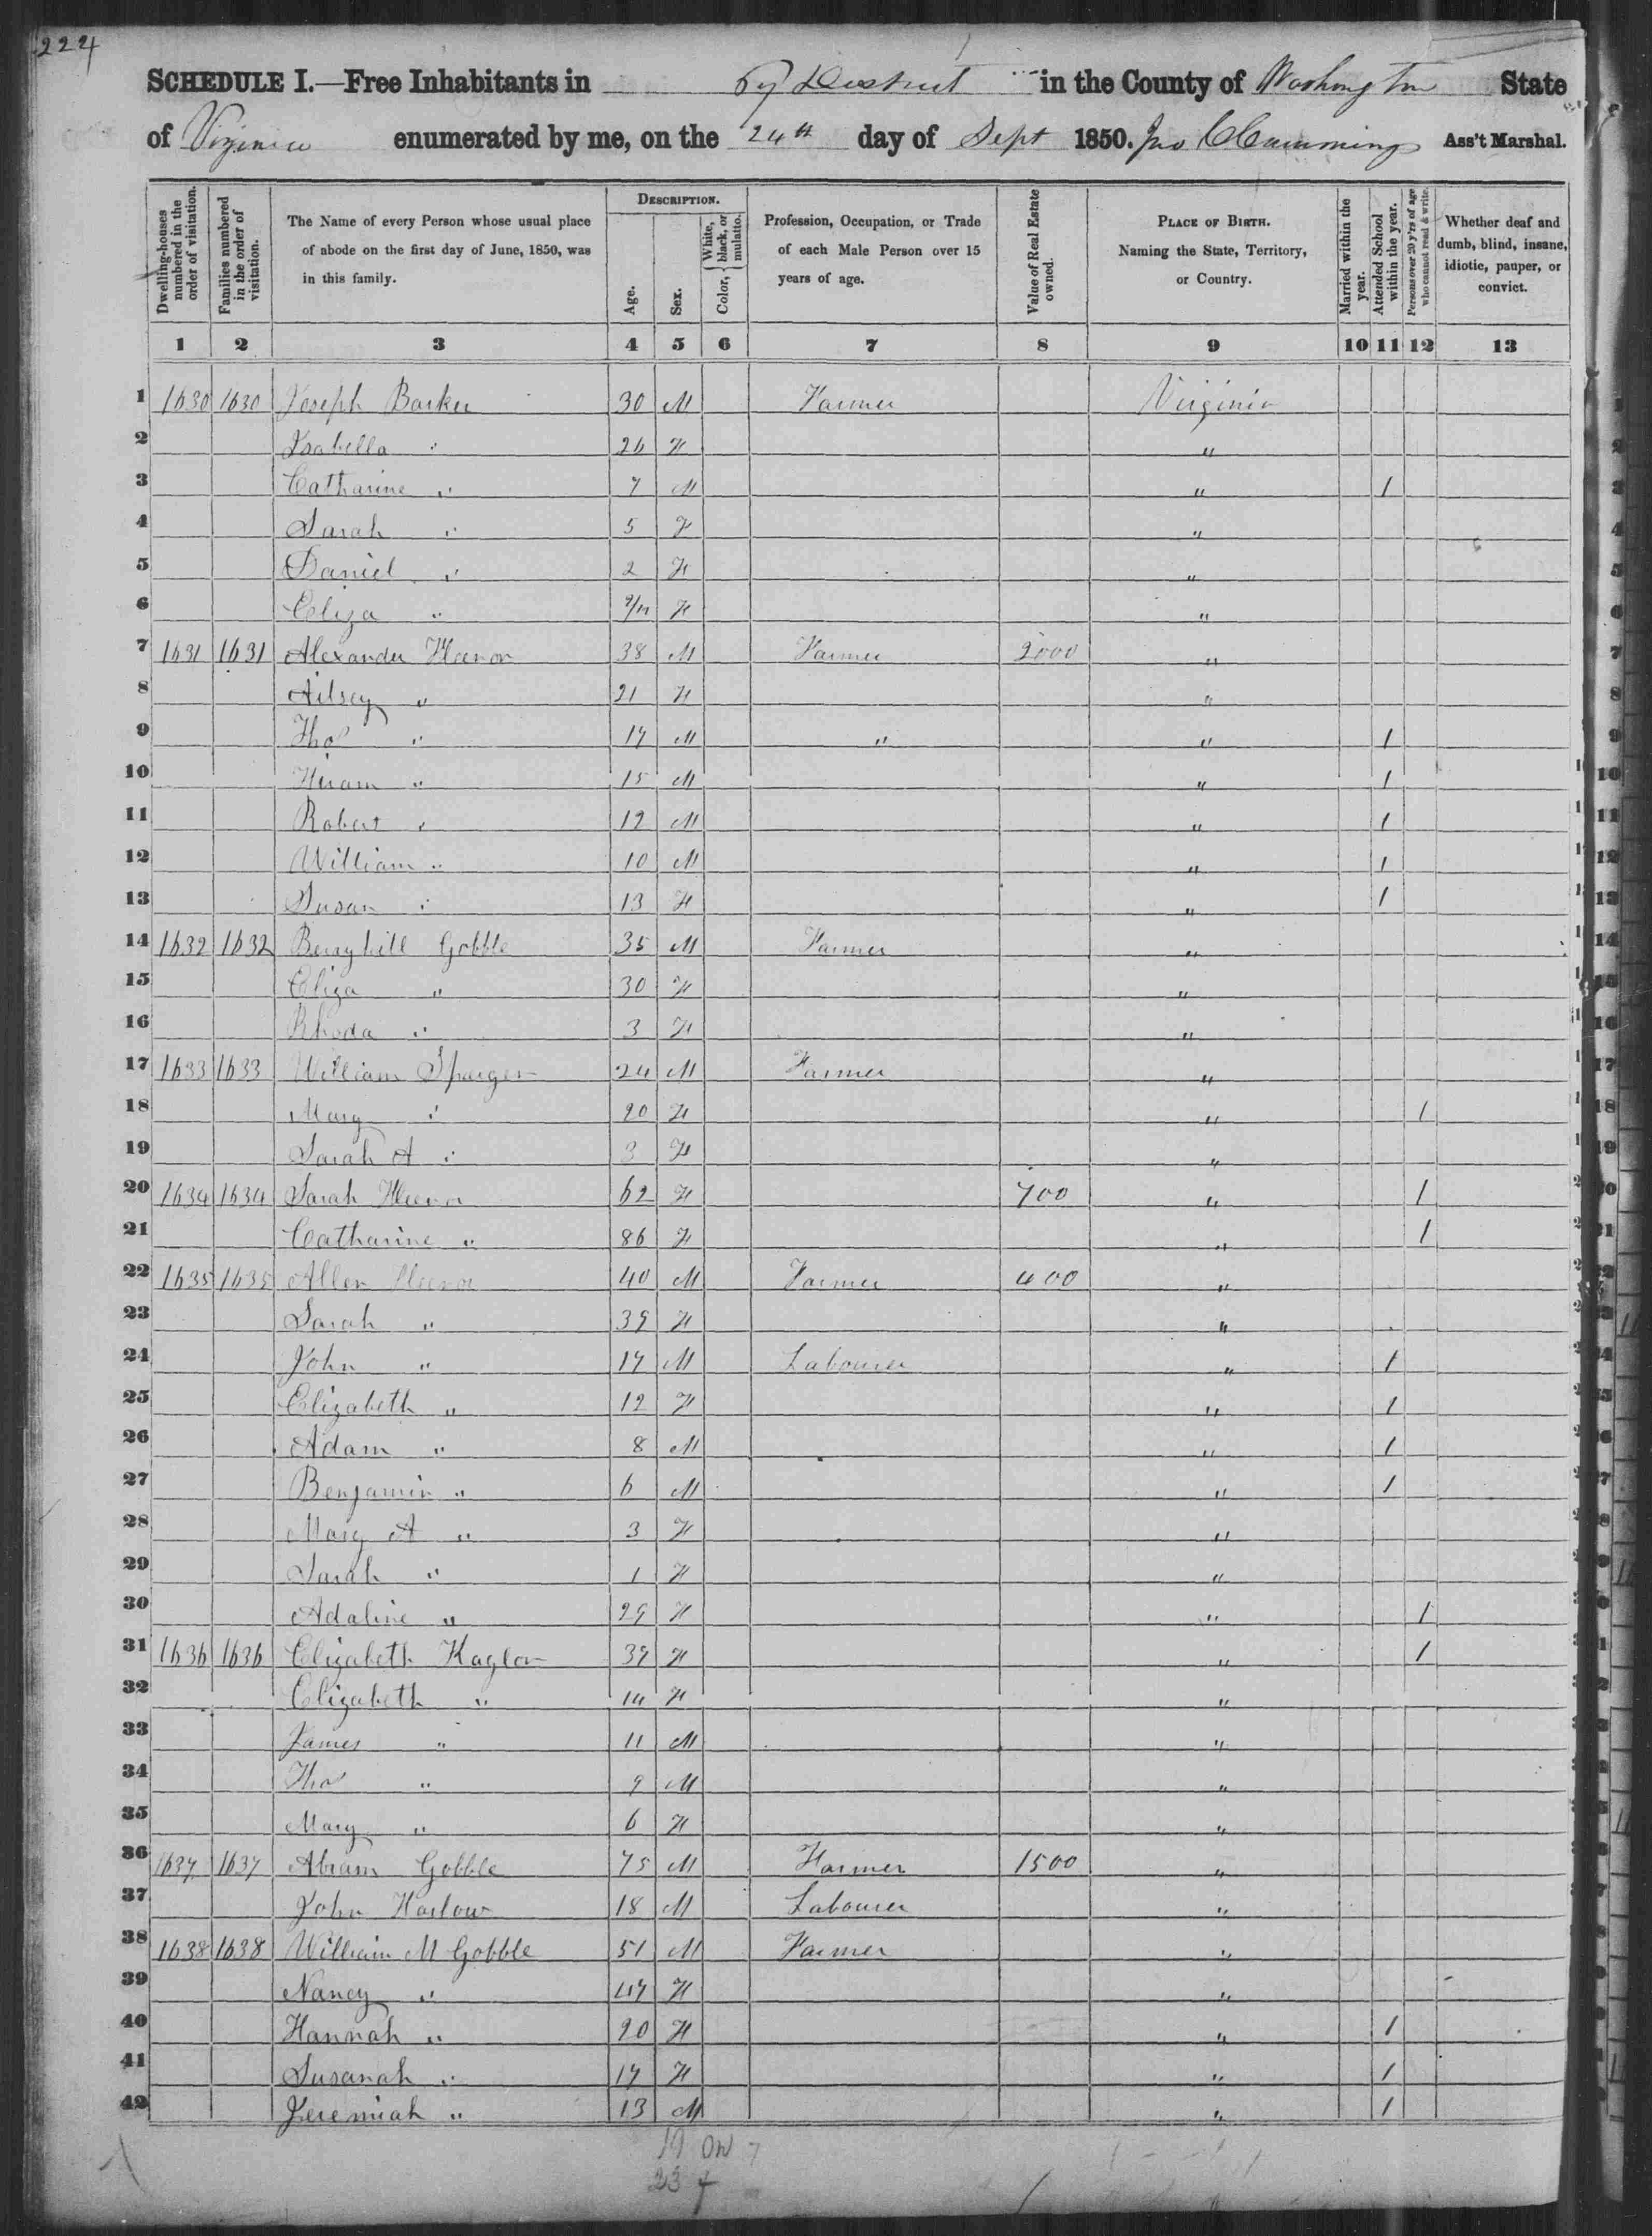 224
SCHEDULE I.—Free Inhabitants in 67 District in the County of Washington State
of Virginia enumerated by me, on the 24th day of Sept 1850. Jno C Cummings Ass't Marshal.
Dwelling-houses numbered in the order of visitation.
Families numbered in the order of visitation.
The Name of every Person whose usual place of abode on the first day of June, 1850, was in this family.
DESCRIPTION.
Age.
Sex.
Color, White, black, or mulatto.
Profession, Occupation, or Trade of each Male Person over 15 years of age.
Value of Real Estate owned.
PLACE OF BIRTH. Naming the State, Territory, or Country.
Married within the year.
Attended School within the year.
Persons over 20 y'rs of age who cannot read & write.
Whether deaf and dumb, blind, insane, idiotic, pauper, or convict.
1 2 3 4 5 6 7 8 9 10 11 12 13
1 1630 1630 Joseph Barker 30 M Farmer Virginia
2 Isabella " 26 F "
3 Catharine " 7 M " 1
4 Sarah " 5 F "
5 Daniel " 2 F "
6 Eliza " 9/12 F "
7 1631 1631 Alexander 38 M Farmer 2000 "
8 Ailsey " 21 F "
9 Thos " 17 M " " 1
10 Hiram " 15 M " 1
11 Robert " 12 M " 1
12 William " 10 M " 1
13 Susan " 13 F " 1
14 1632 1632 Berryhill Gobble 35 M Farmer "
15 Eliza " 30 F "
16 Rhoda " 3 F "
17 1633 1633 William Sparger 24 M Farmer "
18 Mary " 20 F " 1
19 Sarah A " 3 F "
20 1634 1634 Sarah 62 F 700 " 1
21 Catharine " 86 F " 1
22 1635 1635 Allen 40 M Farmer 400 "
23 Sarah " 39 F "
24 John " 17 M Labourer " 1
25 Elizabeth " 12 F " 1
26 Adam " 8 M " 1
27 Benjamin " 6 M " 1
28 Mary A " 3 F "
29 Sarah " 1 F "
30 Adaline " 29 F " 1
31 1636 1636 Elizabeth Kaylor 39 F " 1
32 Elizabeth " 14 F "
33 James " 11 M "
34 Thos " 9 M "
35 Mary " 6 F "
36 1637 1637 Abram Gobble 75 M Farmer 1500 "
37 John Harlow 18 M Labourer "
38 1638 1638 William M Gobble 51 M Farmer "
39 Nancy " 47 F "
40 Hannah " 20 F " 1
41 Susanah " 17 F " 1
42 Jeremiah " 13 M " 1
19
23 f